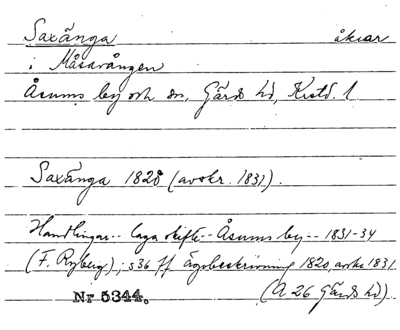 Saxänga åkrar
i Måsavången
Åsums by och sn, Gärds hd, Kristd. l
Saxänga 1820 (avskr. 1831).
Handlingar -- laga skifte -- Åsums by -- 1831-34
(F. Ryberg); s36 ff ägobeskrivning 1820, avskr 1831
(A 26 Gärds hd)
Nr 5344.